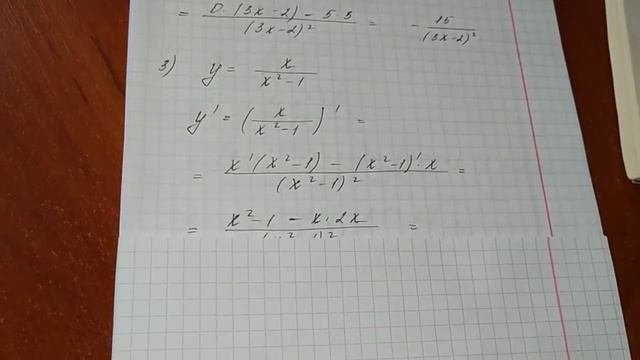 = (0 · (3x-2) - 5·3)/(3x-2)² = - 15/(3x-2)²
3) y = x/(x²-1)
y' = (x/(x²-1))' =
= (x'(x²-1) - (x²-1)'·x)/(x²-1)² =
= (x²-1 - x·2x)/(x²-1)² =